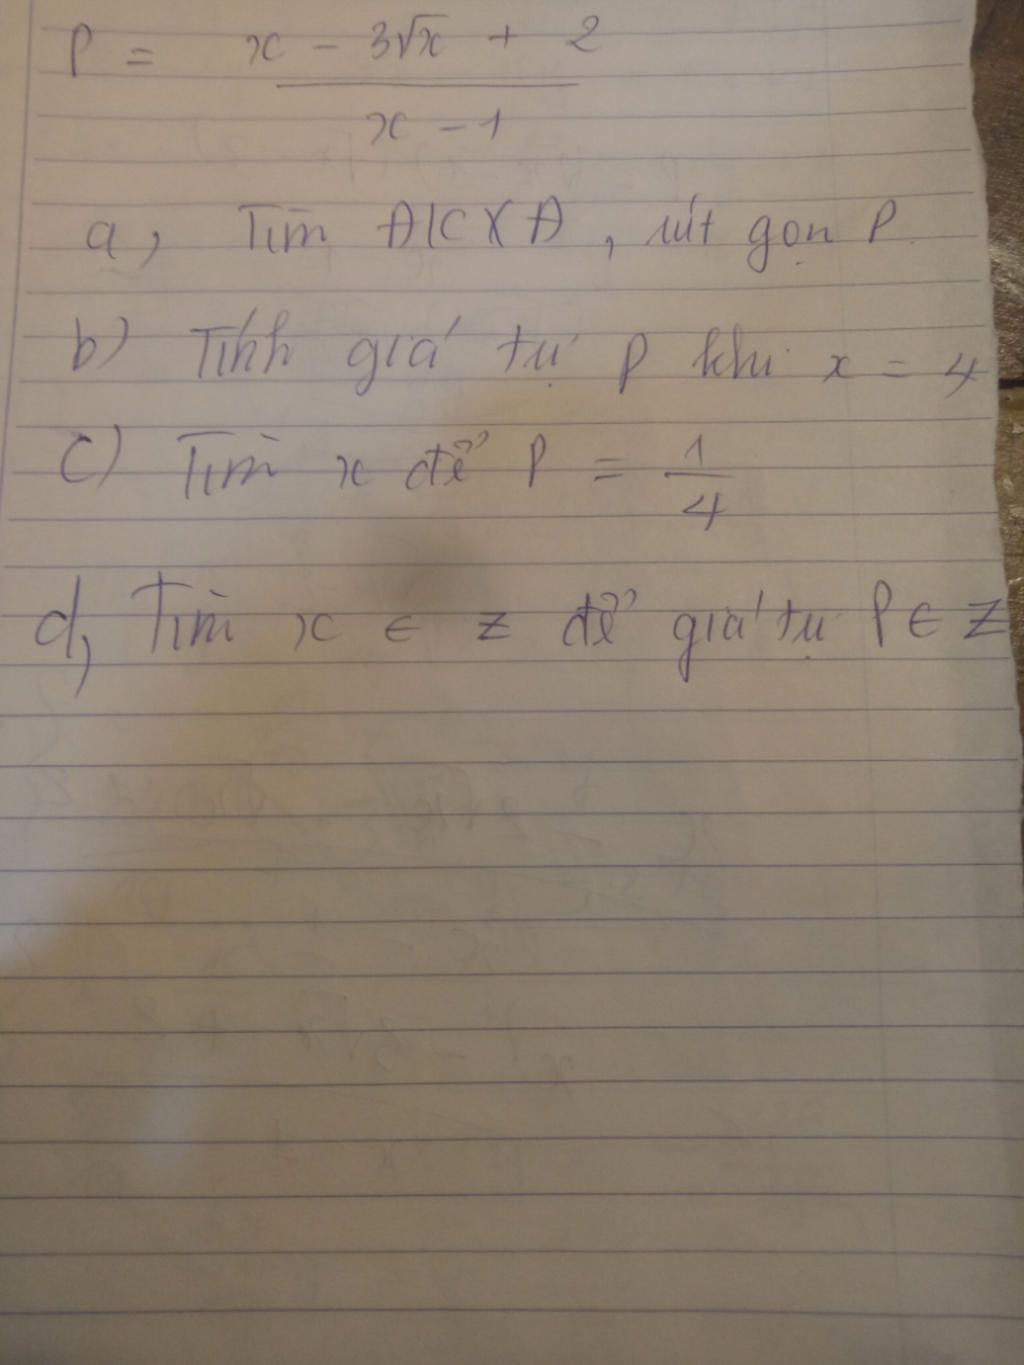 P = x - 3√x + 2 / x - 1
a, Tìm ĐKXĐ, rút gọn P.
b) Tính giá trị P khi x = 4
c) Tìm x để P = 1/4
d, Tìm x ∈ Z để giá trị P ∈ Z